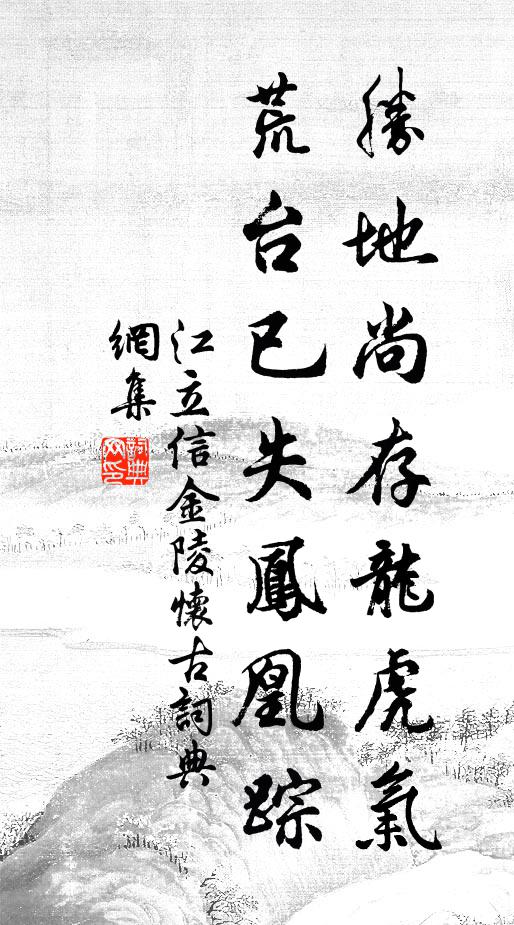 勝地尚存龍虎氣
荒台已失鳳凰踪
江立信金陵懷古詞典
網集
詞典网印